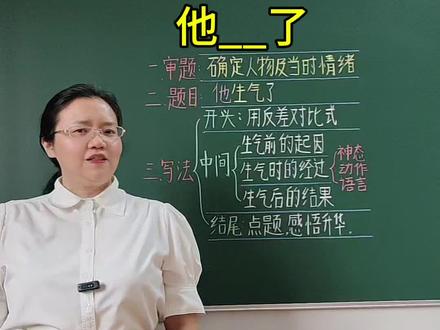 他__了
一.审题:确定人物及当时情绪
二.题目:他生气了
三.写法
开头:用反差对比式
中间
生气前的起因
生气时的经过
神态
动作
语言
生气后的结果
结尾:点题,感悟升华.